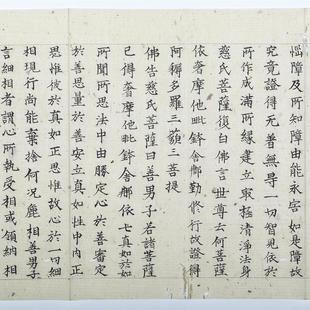 惱障及所知障由能永害如是障故
究竟證得无著無导一切智見依於
所作成滿所緣建立最極清淨法身
慈氏菩薩復白佛言世尊云何菩薩
依奢摩他毗鉢舍那勤修行故證得
阿耨多羅三藐三菩提
佛告慈氏菩薩曰善男子若諸菩薩
已得奢摩他毗鉢舍那依七真如於如
所聞所思法中由勝定心於善審定
於善思量於善安立真如性中內正
思惟彼於真如正思惟故心於一切細
相現行尚能棄捨何況麁相善男子
言細相者謂心所執受相或領納相